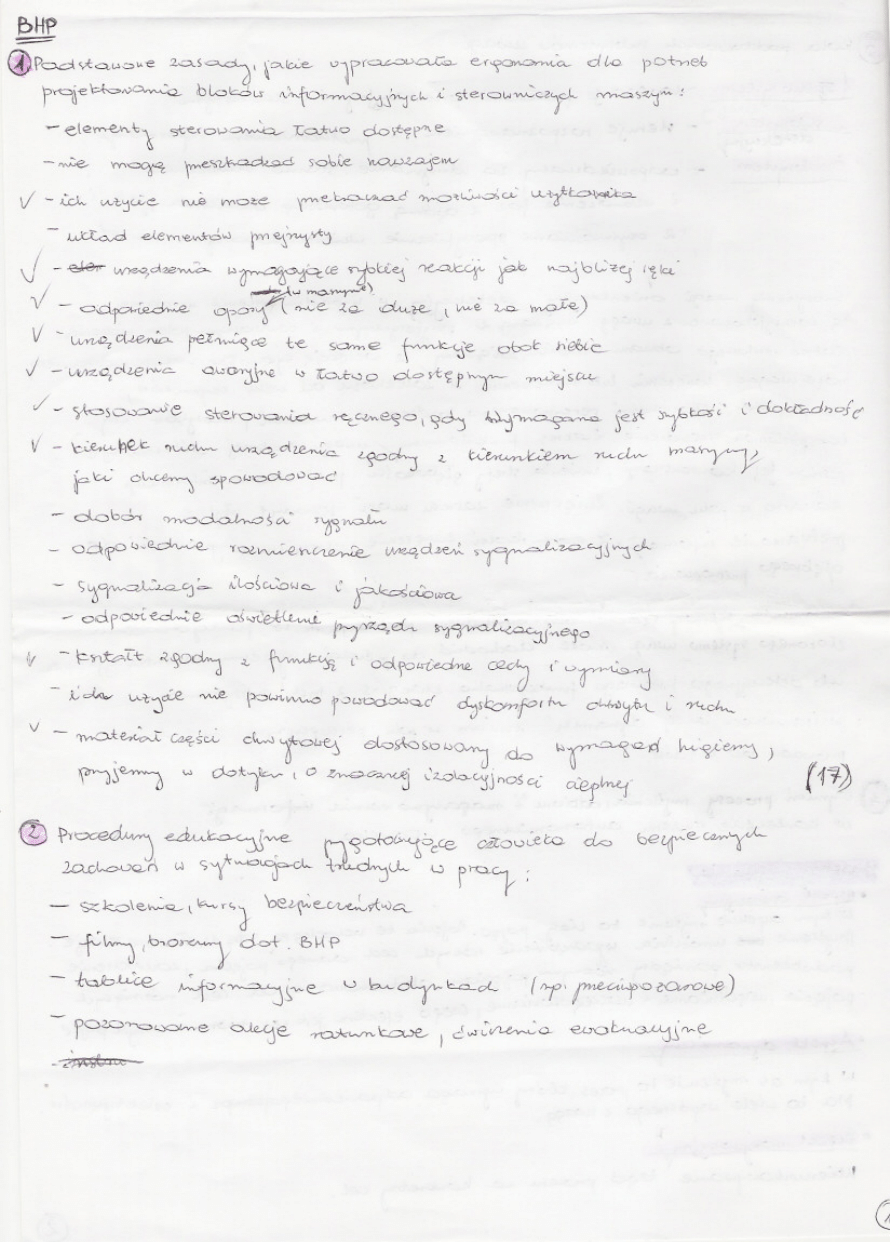 BHP
1. Podstawowe zasady, jakie wypracowała ergonomia dla potrzeb
projektowania bloków informacyjnych i sterowniczych maszyn:
- elementy sterowania łatwo dostępne
- nie mogą przeszkadzać sobie nawzajem
✓ - ich użycie nie może przekraczać możliwości użytkownika
- układ elementów przejrzysty
✓ - urządzenia wymagające szybkiej reakcji jak najbliżej ręki
✓ - odpowiednie opory (nie za duże, nie za małe)
✓ - urządzenia pełniące te same funkcje obok siebie
✓ - urządzenia awaryjne w łatwo dostępnym miejscu
✓ - stosowanie sterowania ręcznego, gdy wymagana jest szybkość i dokładność
✓ - kierunek ruchu urządzenia zgodny z kierunkiem ruchu maszyny,
jaki chcemy spowodować
- dobór modalności sygnału
- odpowiednie rozmieszczenie urządzeń sygnalizacyjnych
- sygnalizacja ilościowa i jakościowa
- odpowiednie oświetlenie przyrządu sygnalizacyjnego
✓ - kształt zgodny z funkcją i odpowiednie cechy i wymiary
- ich użycie nie powinno powodować dyskomfortu chwytu i ruchu
✓ - materiał części chwytowej dostosowany do wymagań higieny,
przyjemny w dotyku, o znacznej izolacyjności cieplnej (17)
2 Procedury edukacyjne przygotowujące człowieka do bezpiecznych
zachowań w sytuacjach trudnych w pracy:
- szkolenia, kursy bezpieczeństwa
- filmy, broszury dot. BHP
- tablice informacyjne w budynkach (np. przeciwpożarowe)
- pozorowane akcje ratunkowe, ćwiczenia ewakuacyjne
1